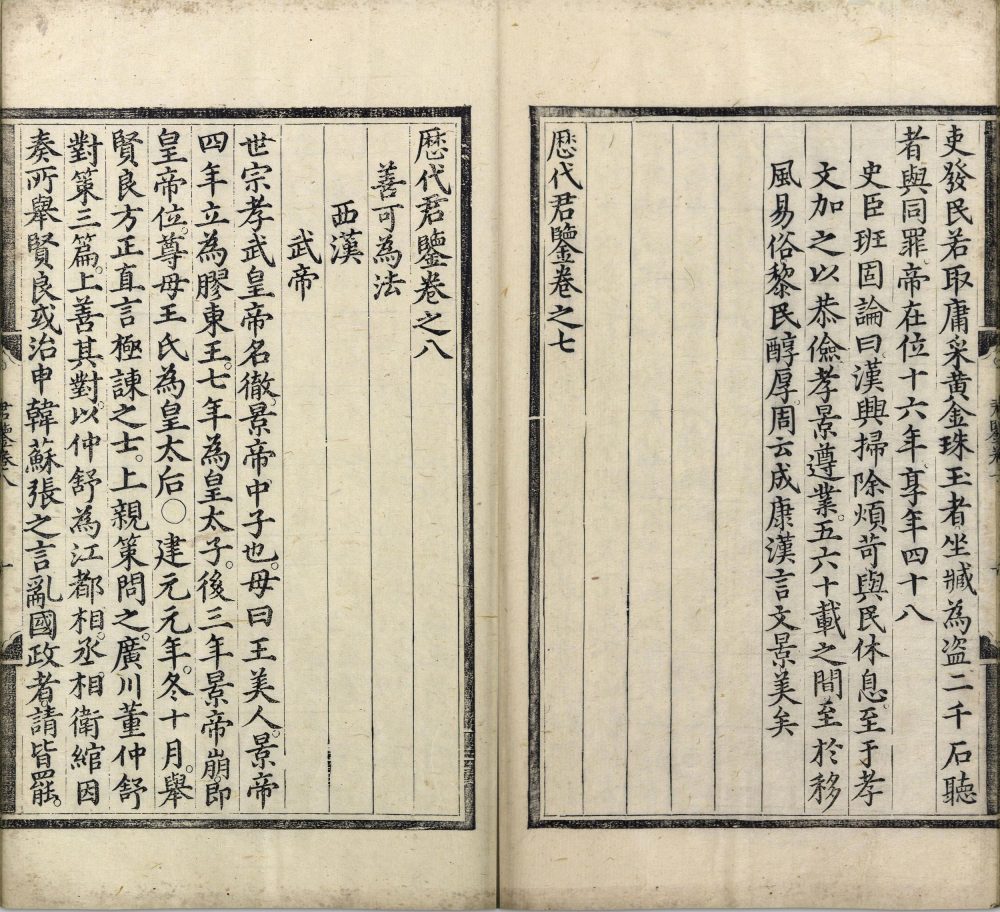 吏發民若取庸采黃金珠玉者坐贓為盜二千石聽
者與同罪帝在位十六年享年四十八
史臣班固論曰漢興掃除煩苛與民休息至于孝
文加之以恭儉孝景遵業五六十載之間至於移
風易俗黎民醇厚周云成康漢言文景美矣
歷代君鑒卷之七
歷代君鑒卷之八
善可為法
西漢
武帝
世宗孝武皇帝名徹。景帝中子也。母曰王美人。景帝
四年立為膠東王。七年為皇太子。後三年景帝崩。即
皇帝位。尊母王氏為皇太后○建元元年。冬十月。舉
賢良方正直言極諫之士。上親策問之。廣川董仲舒
對策三篇。上善其對。以仲舒為江都相。丞相衛綰因
奏所舉賢良或治申韓蘇張之言亂國政者請皆罷。
君鑒卷八